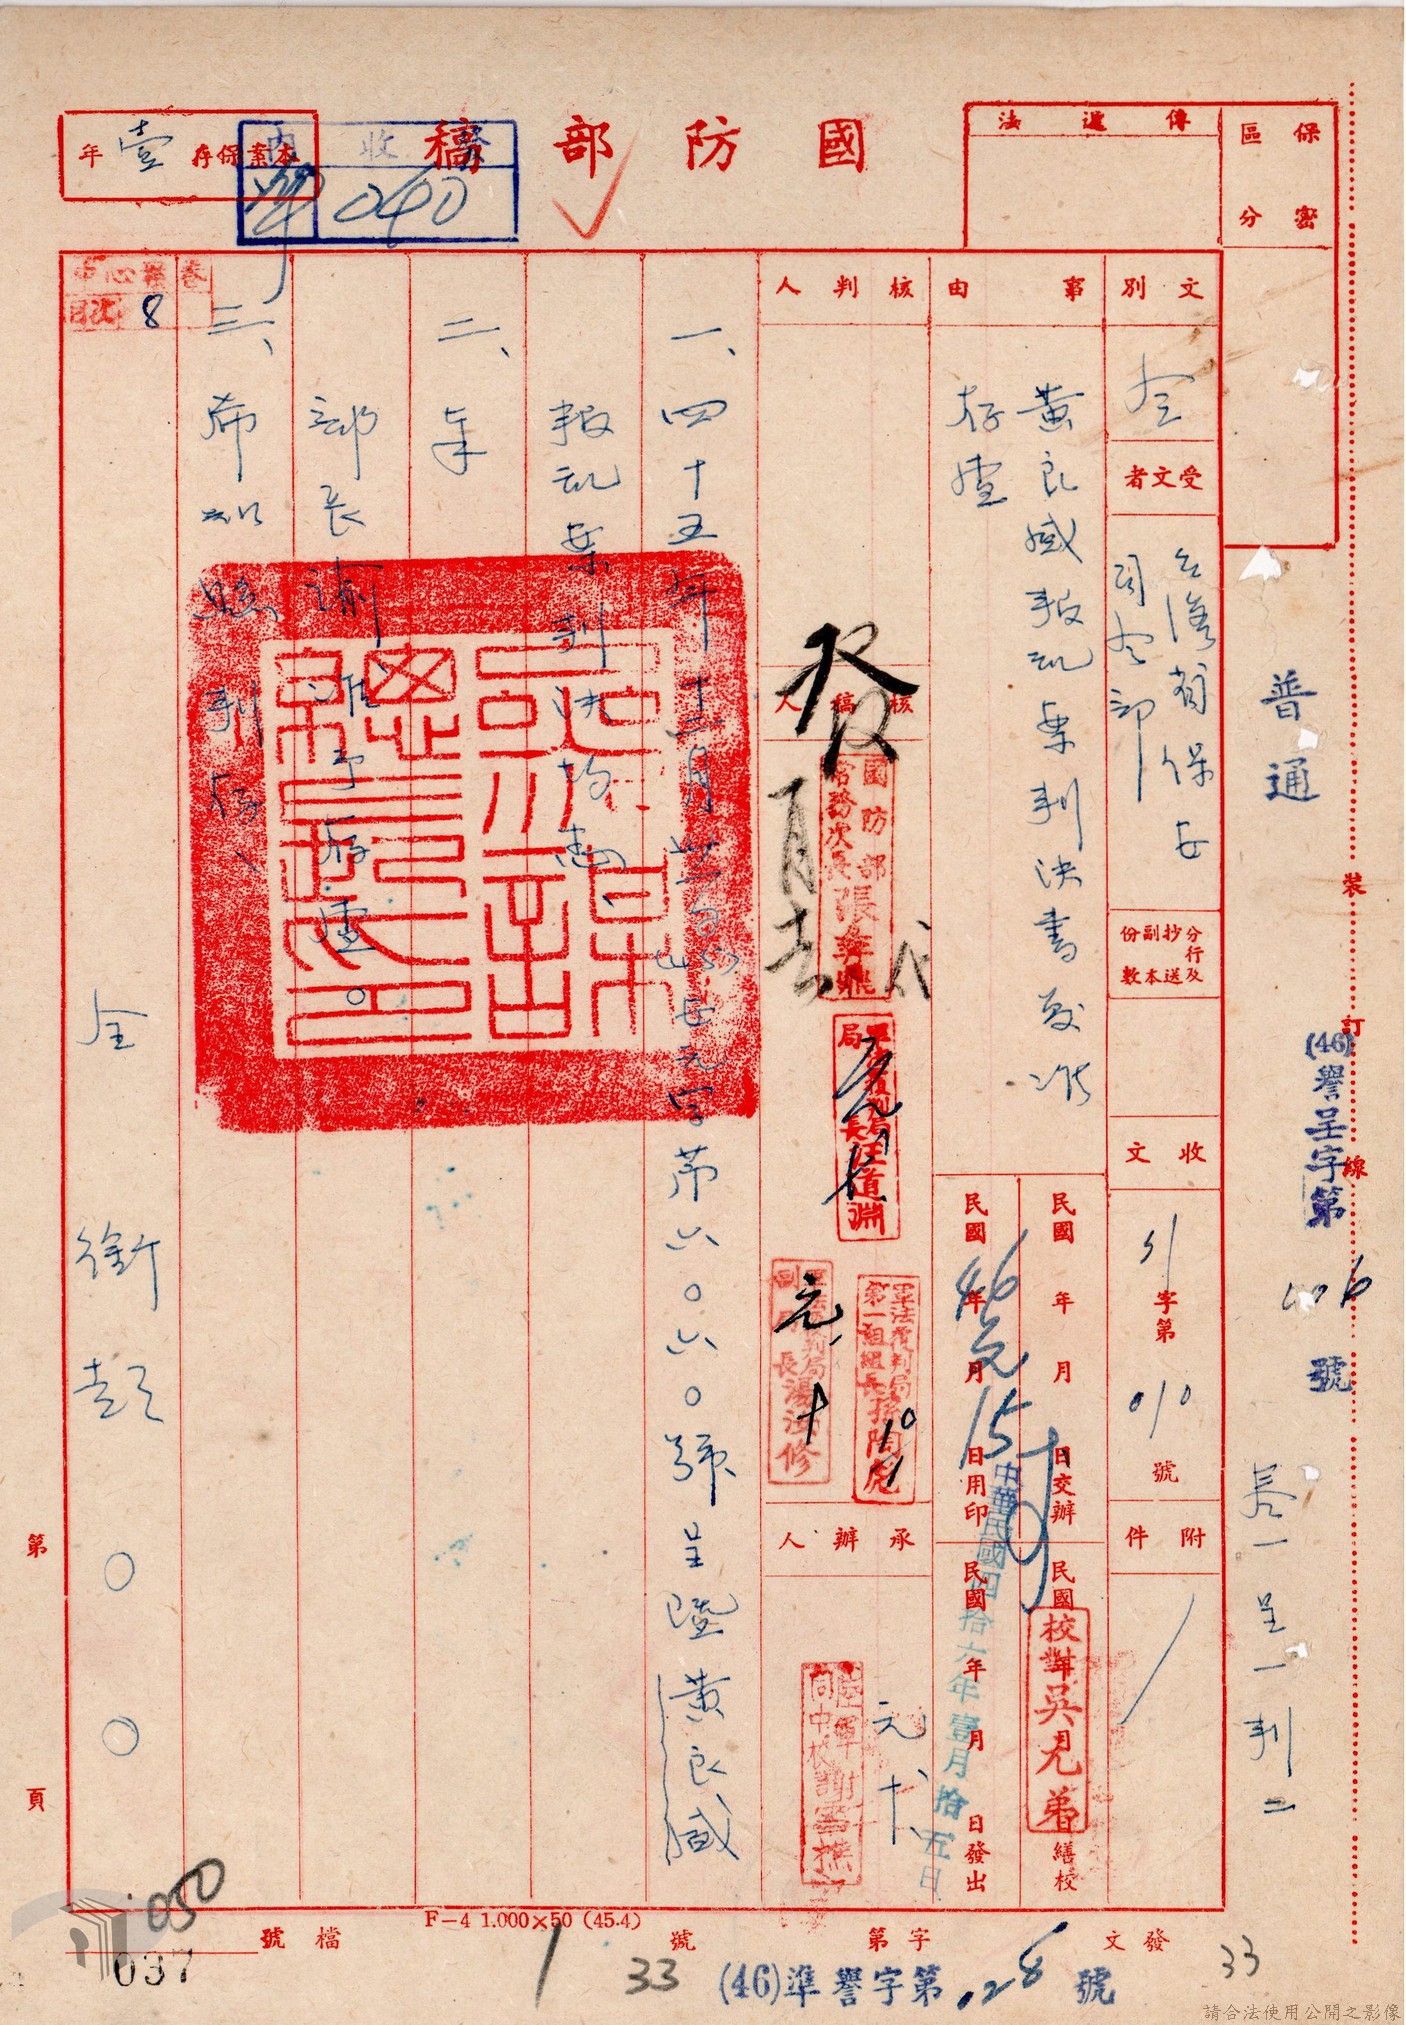 國防部稿
本案保存壹年
內收
040
傳遞法
保密區分
普通
裝訂線
(46)譽呈字第
號
文別
令
受文者
台灣省保安
司令部
分行及抄送副本份數
收文
字第
010
號
附件
事由
黃良臧叛亂案判決書
存查
民國 年 月 日交辦
民國46年元月15日用印
民國 年 月 日繕校
民國 年 月 日發出
中華民國四拾六年壹月拾五日
校對吳見弟
核判人
發
核稿人
國防部常務次長張彝鼎
代
局長汪道淵
軍法覆判局副局長湯
修
元
十
軍法覆判局第一組組長孫陶彪
承辦人
元
十
一、四十五年十二月
安元字第六〇六〇號呈暨黃良臧
叛亂案判決均悉
二、奉
部長諭准予存查。
三、希知照
中心單卷
目次
8
全銜彭〇〇
第頁
050
037
檔號
F-4 1.000×50 (45.4)
1
33
發文
字第
號
(46)準譽字第028號
33
請合法使用公開之影像